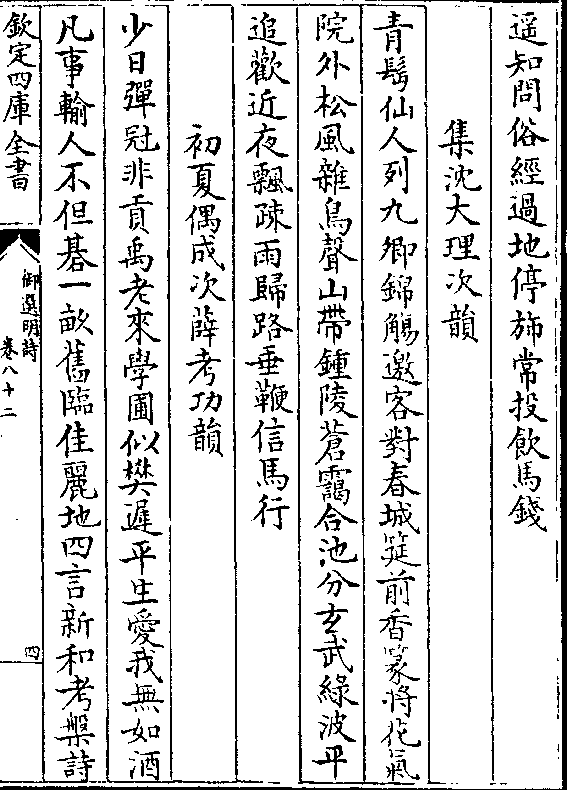 遥知問俗經過地停旆常投飲馬錢
集沈大理次韻
青髩仙人列九卿錦觴邀客對春城筵前香篆將花氣
院外松風雜鳥聲山帶鍾陵蒼靄合池分玄武綠波平
追歡近夜飄疎雨歸路垂鞭信馬行
初夏偶成次薛考功韻
少日彈冠非貢禹老來學圃似樊遲平生愛我無如酒
凡事輸人不但碁一畝舊臨佳麗地四言新和考槃詩
欽定四庫全書
御選明詩
卷八十二
四